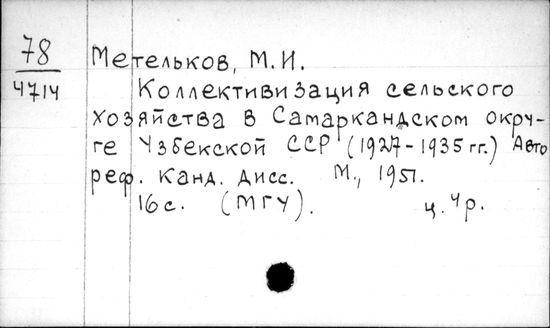 78
4714
Метельков, М.И.
Коллективизация сельского
хозяйства в Самаркандском окру-
ге Узбекской ССР (1927-1935 гг.) Авто
реф. канд. дисс. М., 1951.
16 с. (МГУ). ц. 4 р.